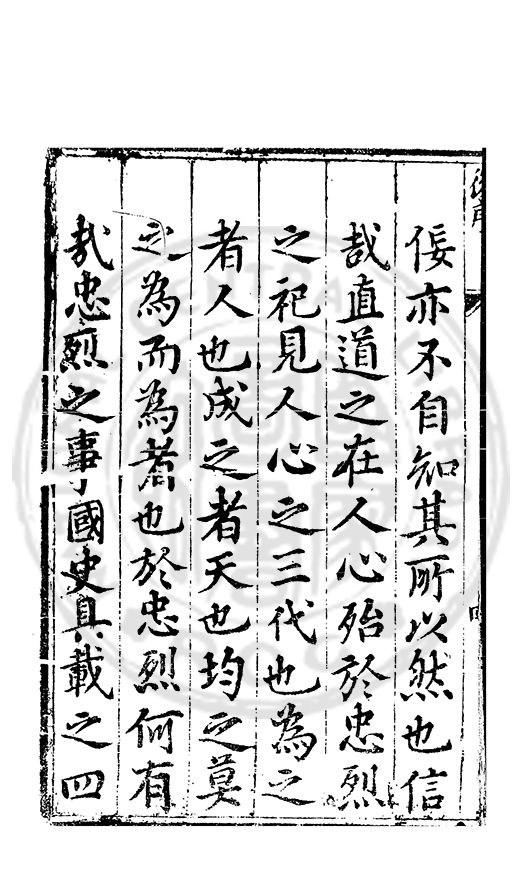 佞亦不自知其所以然也信
哉直道之在人心殆於忠烈
之祀見人心之三代也為之
者人也成之者天也均之莫
之為而為者也於忠烈何有
哉忠烈之事國史具載之四